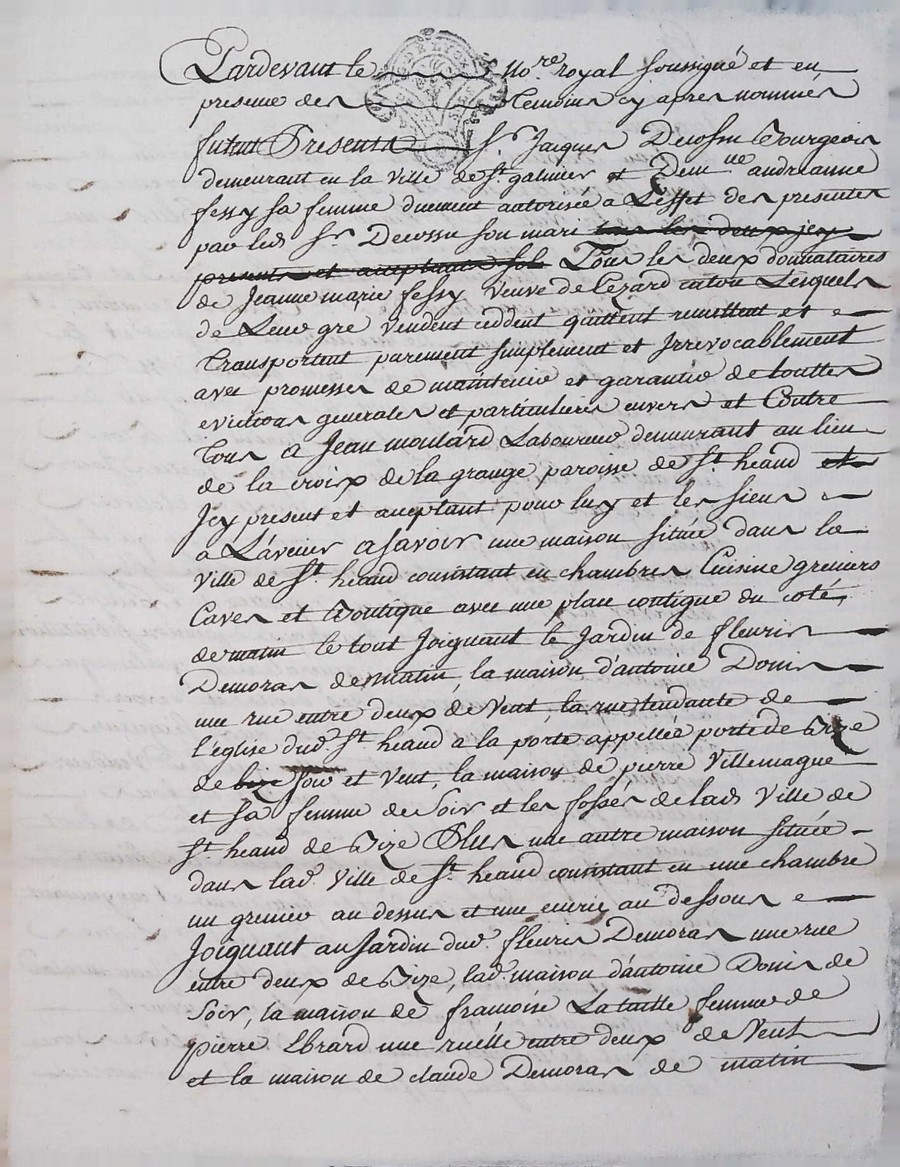 Pardevant le no.re royal soussigné et en
presence des Temoins cy apres nommés
futut Presents Sr. Jacques Decossu Bourgeois
demeurant en la Ville de St. galmier et Dem.lle andréanne
fessy sa femme duement autorisée a L'effet des presentes
par led. Sr. Decossu son mari tous les deux jcy
presents et acceptants sol Tous les deux donnataires
de Jeanne marie fessy veuve de Lezard caton Lesquels
de Leur gré Vendent ceddent quittent remettent et
transportent purement simplement et Irrevocablement
avec promesses de maintenir et garantir de touttes
evictions generales et particulieres envers et Contre
Tous a Jean moulard Laboureur demeurant au lieu
de la croix de la grange paroisse de St. heand et
Jcy present et acceptant pour luy et les siens
a L'avenir asavoir une maison située dans la
Ville de St. heand consistant en chambres Cuisine greniers
Caves et Boutique avec une place contigue du coté
de matin le tout Joignant le Jardin de fleuris
Demoras de matin, la maison d'antoine Donis
une rue entre deux de Vent, la rue tendante de
l'eglise dud. St. heand a la porte appellée porte de Bize
de bize soir et Vent, la maison de pierre Villemagne
et sa femme de Soir et les fossés de lad. Ville de
St. heand de Bize Plus une autre maison située
dans lad. Ville de St. heand consistant en une chambre
un grenier au dessus et une ecurie au dessous
Joignant au Jardin dud. fleuris Demoras une rue
entre deux de Bize, lad. maison d'antoine Donis de
Soir, la maison de framoise Lataille femme de
pierre Ebrard une ruélle entre deux de Vent
et la maison de claude Demoras de matin